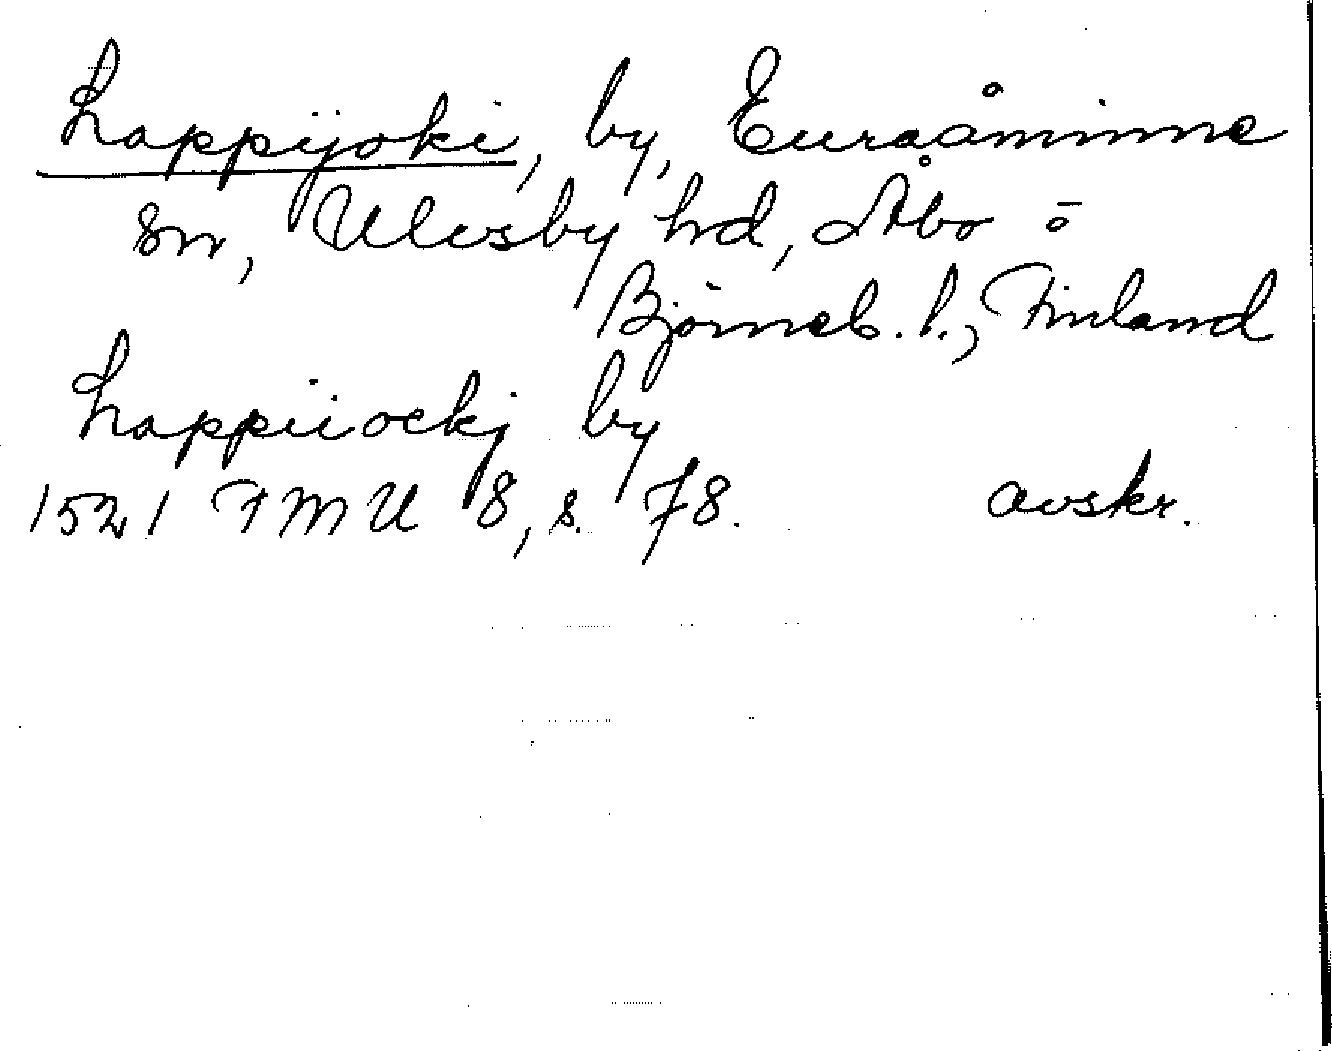 Lappijoki, by, Euraåminne
sn, Ulvsby hd, Åbo o
Björneb. l., Finland
Lappiiockj by
1521 FMU 8, s. 78. avskr.